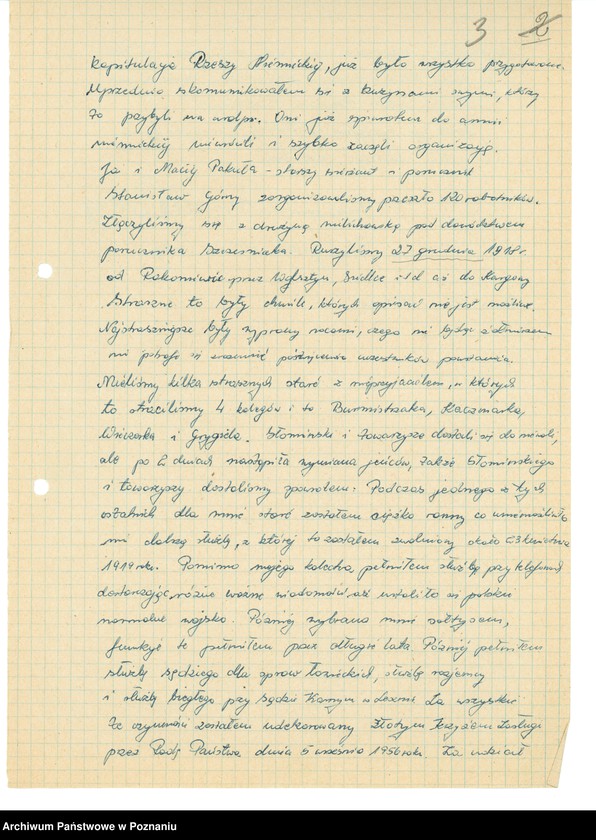 3 2
kapitulacja Rzeszy Niemieckiej, już było wszystko przygotowane.
Uprzednio skomunikowałem się z kuzynami swymi, którzy
to przybyli na urlop. Oni już spowrotem do armii
niemieckiej niewrócili i szybko zaczęli organizację.
Ja i Maciej Pakuła - starszy sierżant i porucznik
Stanisław Górny zorganizowaliśmy przeszło 120 robotników.
Złączyliśmy się z drużyną pod dowództwem
porucznika Szcześniaka. Ruszyliśmy 27 grudnia 1918r
od Rakoniewic przez Wolsztyn, Siedlce itd aż do Kargowy
Straszne to były chwile, których opisać nie jest możliwe.
Najstraszniejsze były wyprawy nocami, czego nie będąc żołnierzem
nie potrafi się zrozumieć poświęcenia uczestników powstania.
Mieliśmy kilka strasznych starć z nieprzyjacielem, w których
to straciliśmy 4 kolegów i to Burmistrzaka, Kaczmarka,
i Grygiela. Słomiński i towarzysze dostali się do niewoli,
ale po 2 dniach nastąpiła wymiana jeńców, także Słomińskiego
i towarzyszy dostaliśmy spowrotem. Podczas jednego z tych
ostatnich dla mnie starć zostałem ciężko ranny co uniemożliwiło
mi dalszą służbę, z której to zostałem zwolniony około 23 kwietnia
1919 roku. Pomimo mojego kalectwa, pełniłem służbę przy telefonach
dostarczając różne ważne wiadomości, aż ustaliło się polskie
normalne wojsko. Później wybrano mnie sołtysem,
funkcje te pełniłem przez długie lata. Później pełniłem
służbę sędziego dla spraw łowieckich, służbę rozjemcy
i służbę biegłego przy Sądzie Karnym w Lesznie. Za wszystkie
te czynności zostałem udekorowany Złotym Krzyżem Zasługi
przez Radę Państwa dnia 5 września 1956 roku. Za udział
Archiwum Państwowe w Poznaniu